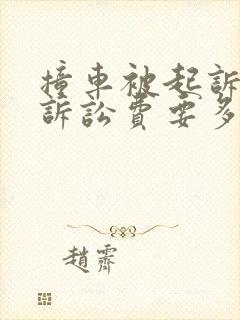 撞車被起訴
訴訟費要多
趙霽